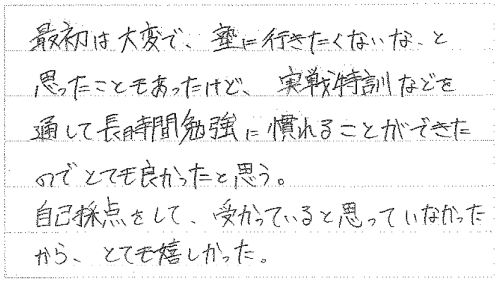 最初は大変で、塾に行きたくないな、と
思ったこともあったけど、実戦特訓などを
通して長時間勉強に慣れることができた
のでとても良かったと思う。
自己採点をして、受かっていると思っていなかった
から、とても嬉しかった。